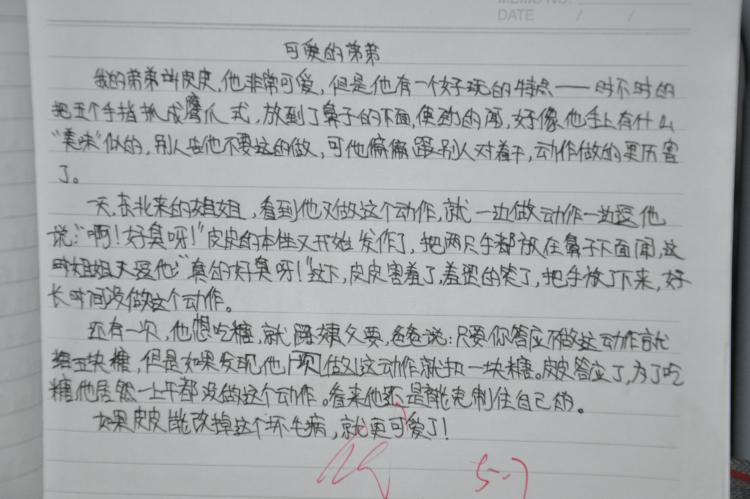 MEMO NO.
DATE / /
可爱的弟弟
我的弟弟叫皮皮,他非常可爱,但是他有一个好玩的特点——时不时的
把五个手指抓成鹰爪式,放到了鼻子的下面,使劲的闻,好像他手上有什么
"美味"似的,别人当他不要这的做,可他偏偏跟别人对着干,动作做的更厉害
了。
一天,东北来的姐姐,看到他又做这个动作,就一边做动作一边逗他
说:"啊!好臭呀!"皮皮的本性又开始发作了,把两只手都放在鼻子下面闻,这
时姐姐又逗他:"真的好臭呀!"这下,皮皮害羞了,羞涩的笑了,把手放了下来,好
长时间没做这个动作。
还有一次,他想吃糖,就跟爸要,爸爸说:只要你答应不做这动作就
给五块糖,但是如果发现他做这动作就扣一块糖。皮皮答应了,为了吃
糖他居然一上午都没做这个动作。看来他还是能克制住自己的。
如果皮皮能改掉这个坏毛病,就更可爱了!
5-7